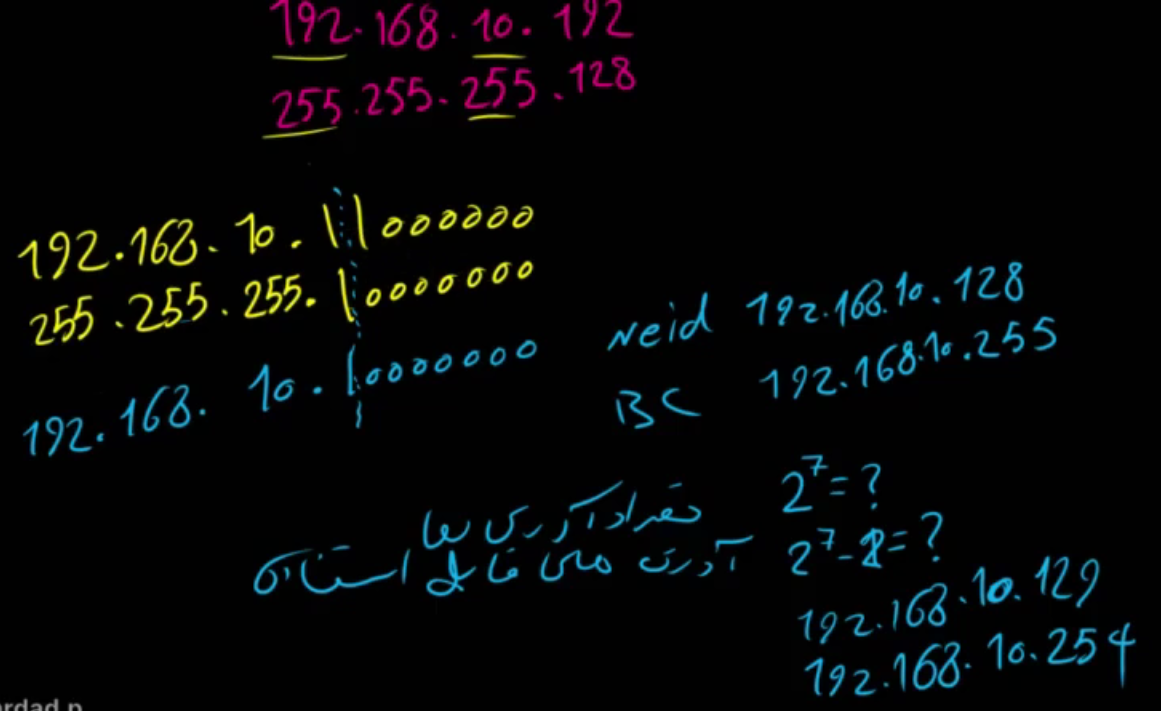 192.168.10.192
255.255.255.128
192.168.10.11000000
255.255.255.10000000
192.168.10.10000000
Neid 192.168.10.128
BC 192.168.10.255
تعداد آدرس ها 2^7=?
آدرس های قابل استفاده 2^7-2=?
192.168.10.129
192.168.10.254
ardad.p